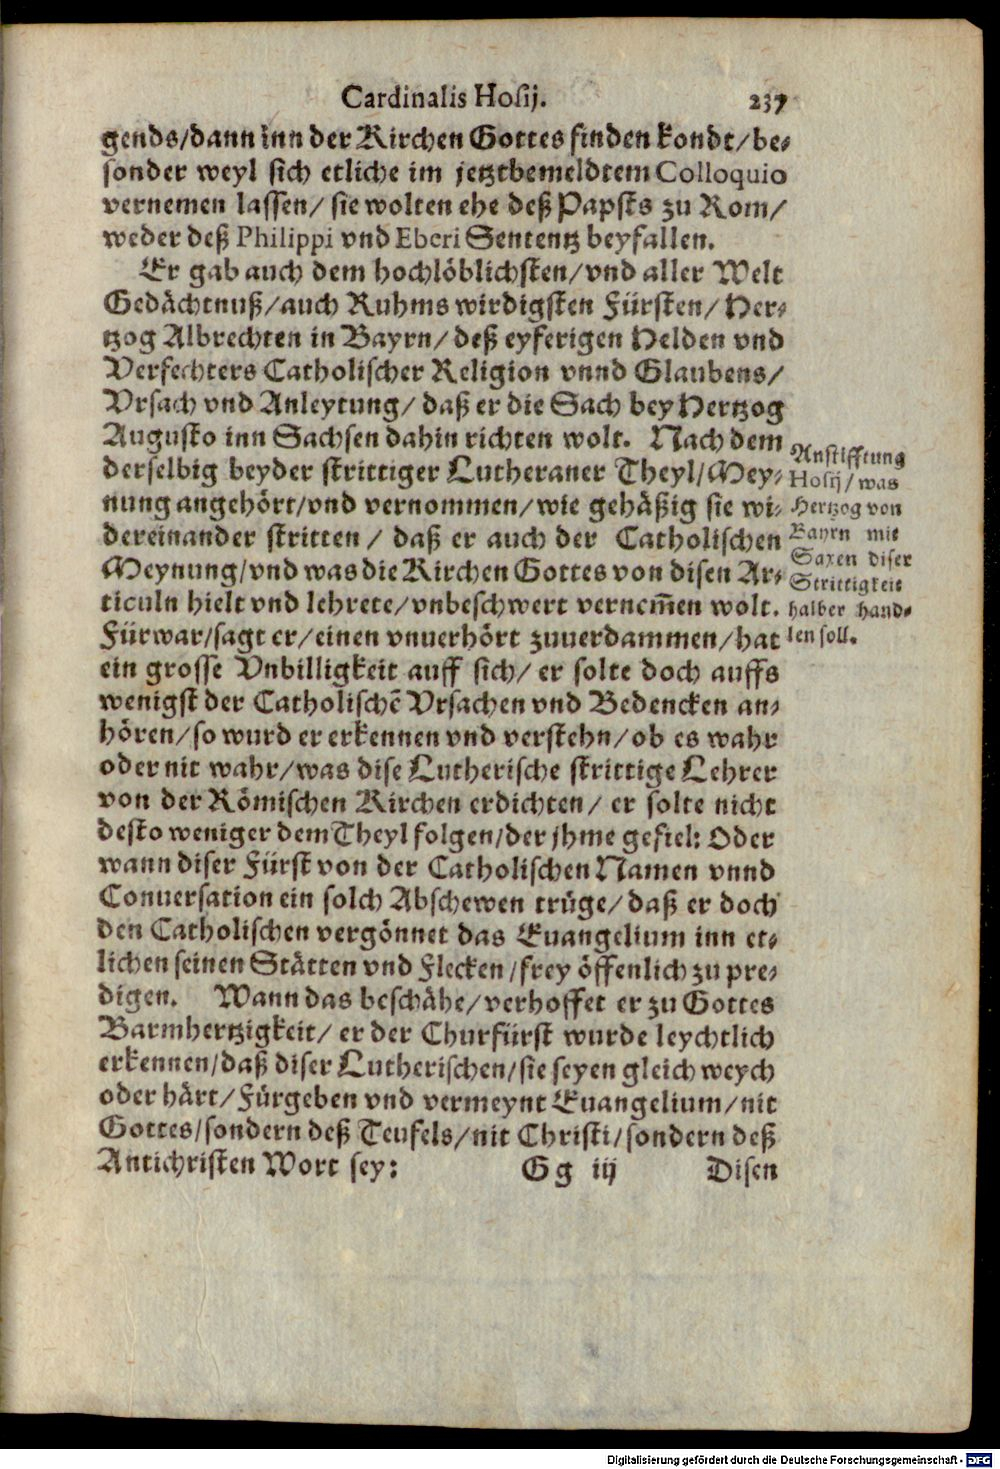 Cardinalis Hosij. 237
gends/dann inn der Kirchen Gottes finden kondt/be-
sonder weyl sich etliche im jetztbemeldtem Colloquio
vernemen lassen/ sie wolten ehe deß Papsts zu Rom/
weder deß Philippi vnd Eberi Sententz beyfallen.
Er gab auch dem hochlöblichsten/vnd aller Welt
Gedächtnuß/auch Ruhms wirdigsten Fürsten/Her-
tzog Albrechten in Bayrn/deß eyferigen Helden vnd
Verfechters Catholischer Religion vnnd Glaubens/
Vrsach vnd Anleytung/ daß er die Sach bey Hertzog
Augusto inn Sachsen dahin richten wolt. Nach dem
derselbig beyder strittiger Lutheraner Theyl/Mey-
nung angehört/vnd vernommen/wie gehäßig sie wi-
dereinander stritten / daß er auch der Catholischen
Meynung/vnd was die Kirchen Gottes von disen Ar-
ticuln hielt vnd lehrete/vnbeschwert vernem̃en wolt.
Fürwar/sagt er/einen vnuerhört zuuerdammen/hat
ein grosse Vnbilligkeit auff sich/ er solte doch auffs
wenigst der Catholischẽ Vrsachen vnd Bedencken an-
hören/so wurd er erkennen vnd verstehn/ob es wahr
oder nit wahr/was dise Lutherische strittige Lehrer
von der Römischen Kirchen erdichten/ er solte nicht
desto weniger dem Theyl folgen/der jhme gefiel: Oder
wann diser Fürst von der Catholischen Namen vnnd
Conuersation ein solch Abschewen trüge/daß er doch
den Catholischen vergönnet das Euangelium inn et-
lichen seinen Stätten vnd Flecken/frey öffenlich zu pre-
digen. Wann das beschähe/verhoffet er zu Gottes
Barmhertzigkeit/ er der Churfürst wurde leychtlich
erkennen/daß diser Lutherischen/sie seyen gleich weych
oder härt/Fürgeben vnd vermeynt Euangelium/nit
Gottes/sondern deß Teufels/nit Christi/sondern deß
Antichristen Wort sey:
Gg iij Disen
Anstifftung
Hosij/was
Hertzog von
Bayrn mit
Saxen diser
Strittigkeit
halber hand-
len soll.
Digitalisierung gefördert durch die Deutsche Forschungsgemeinschaft - DFG